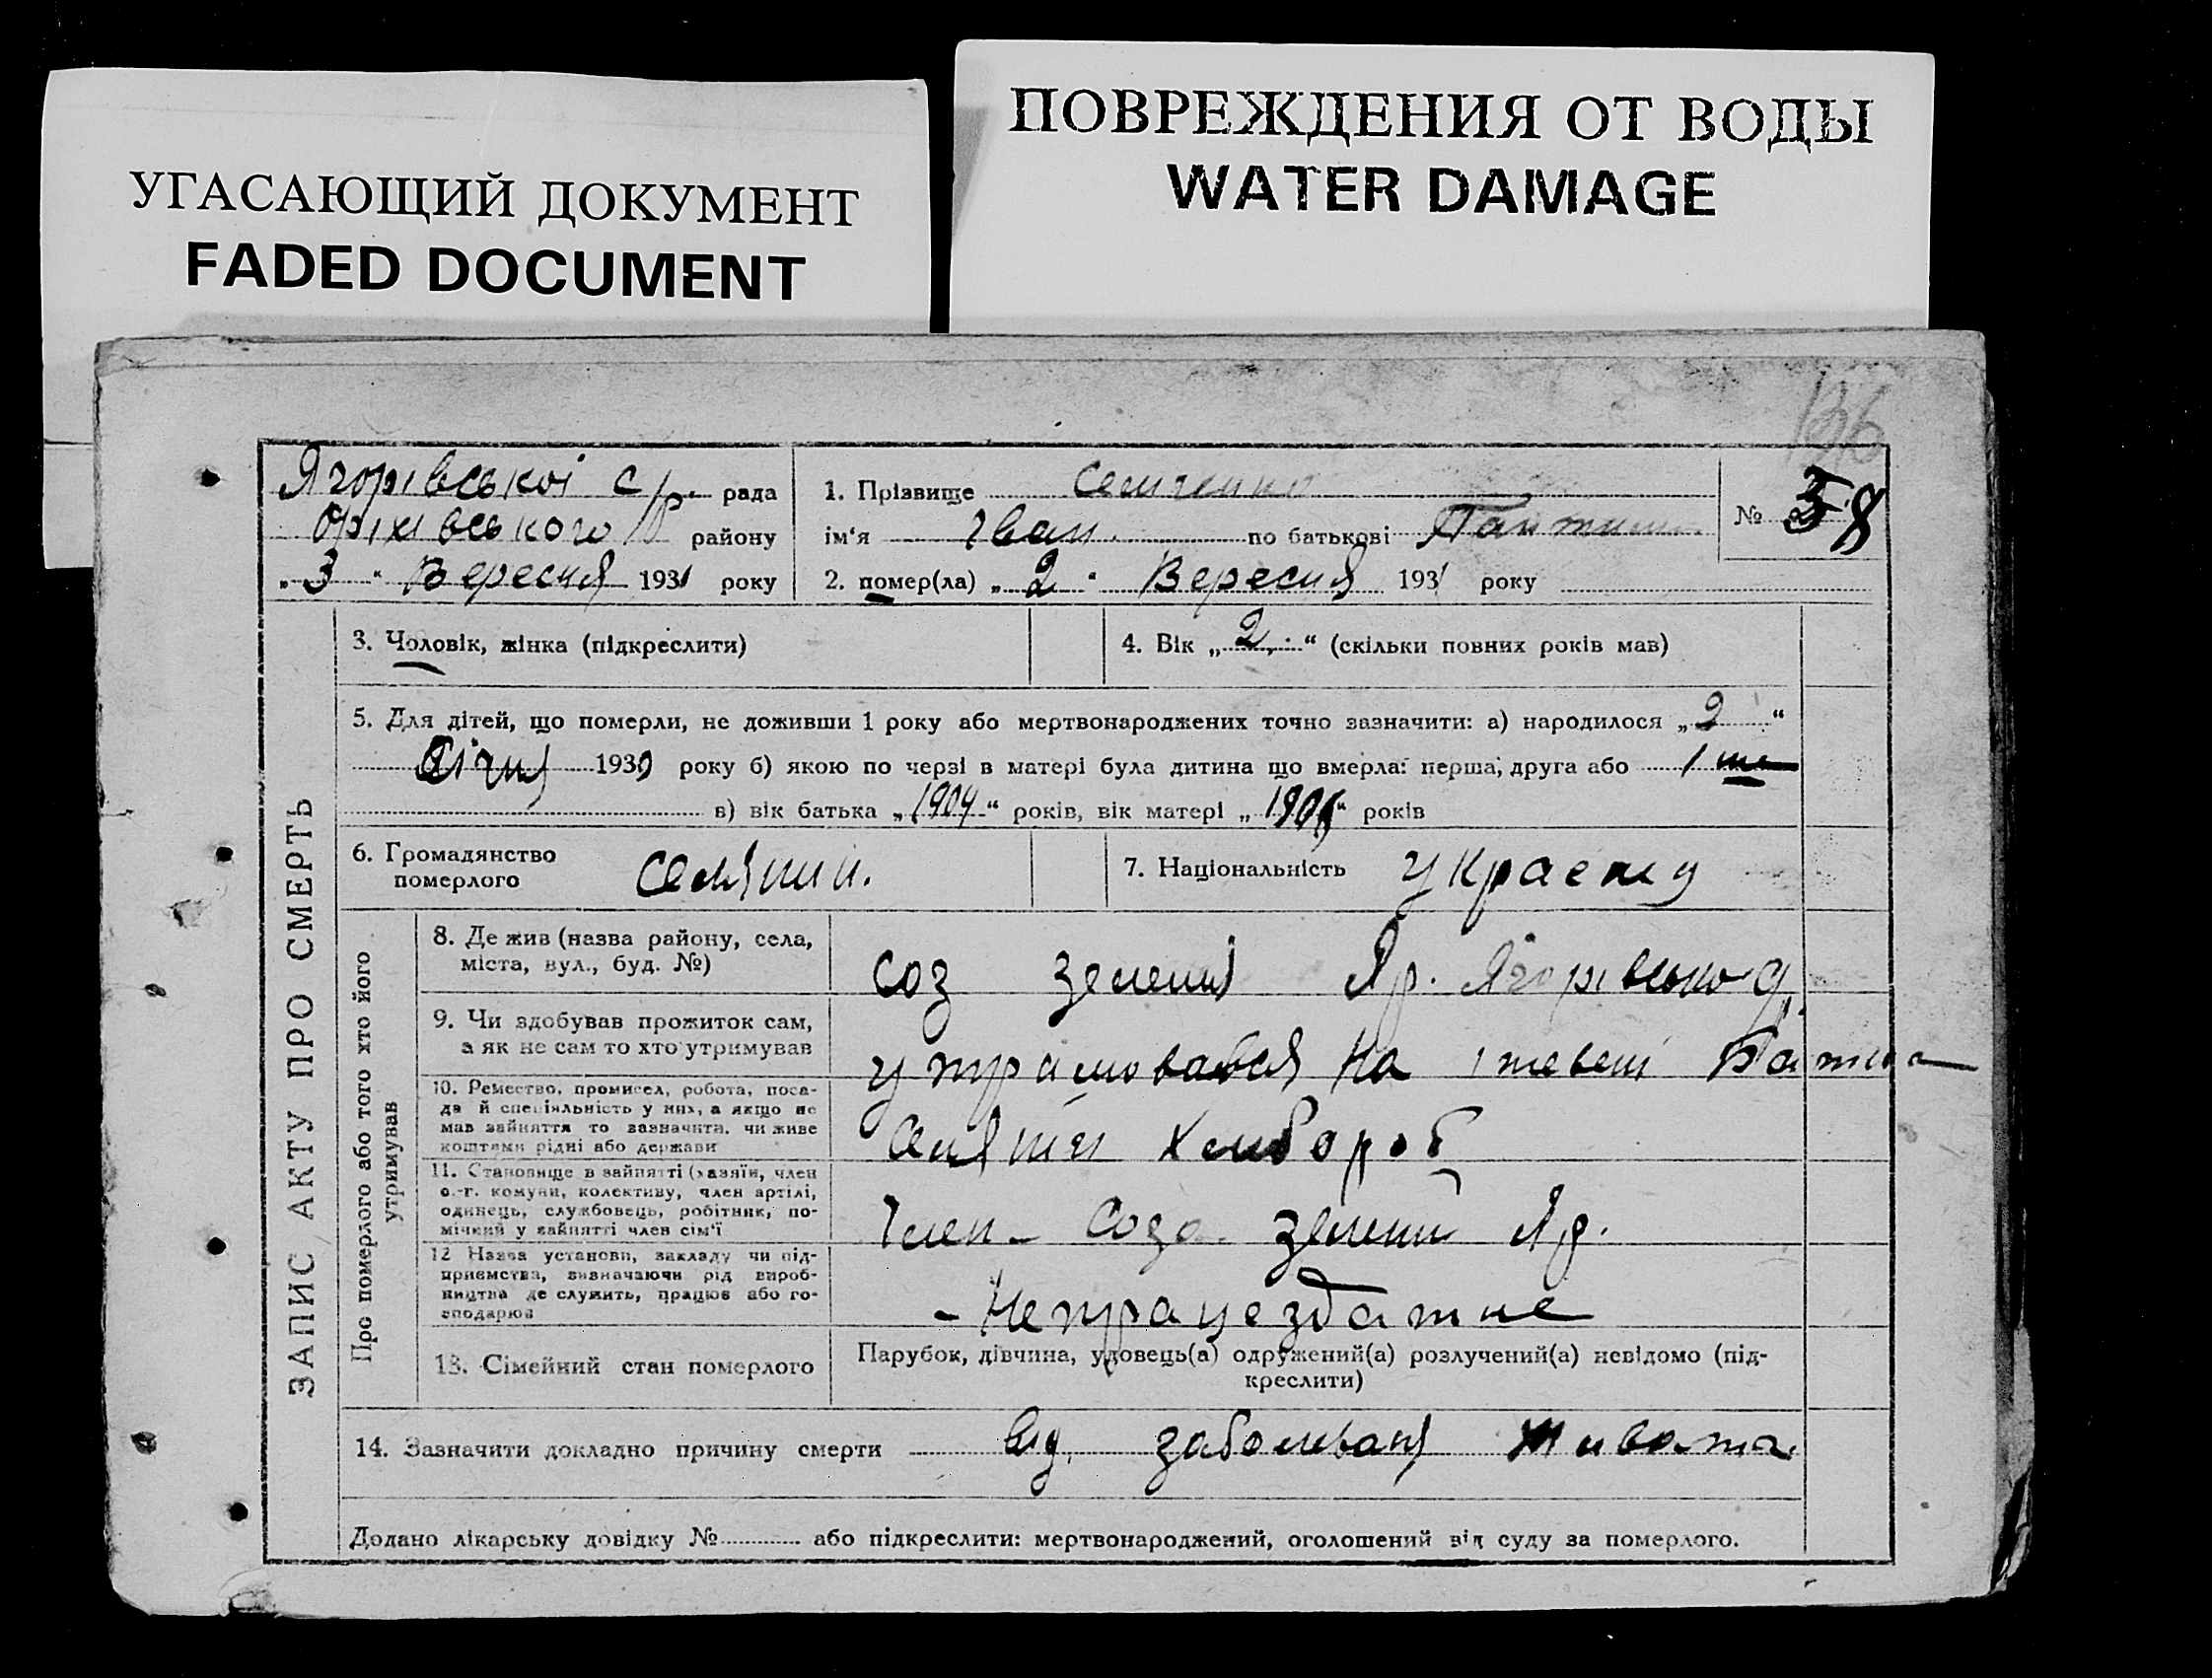 УГАСАЮЩИЙ ДОКУМЕНТ
FADED DOCUMENT
ПОВРЕЖДЕНИЯ ОТ ВОДЫ
WATER DAMAGE
136
Ягорівської с/р. рада
Оріхівського р району
„ 3 “ Вересня 1931 року
1. Прізвище Семченко
ім‘я Іван. по батькові
№ 38
2. помер(ла) „ 2 “ Вересня 1931 року
ЗАПИС АКТУ ПРО СМЕРТЬ
3. Чоловік, жінка (підкреслити)
4. Вік „ 2. “ (скільки повних років мав)
5. Для дітей, що померли, не доживши 1 року або мертвонароджених точно зазначити: а) народилося „ 2 “
Січня 1930 року б) якою по черзі в матері була дитина що вмерла: перша, друга або 1
в) вік батька „ 1904 “ років, вік матері „ “ років
6. Громадянство
померлого
селянин.
7. Національність
Про померлого або того хто його
утримував
8. Де жив (назва району, села,
міста, вул., буд. №)
соз зелений Яр. Ягорівської
9. Чи здобував прожиток сам,
а як не сам то хто утримував
утримовався на Батька
10. Ремество, промисел, робота, поса-
да й спеціяльність у них, а якщо не
мав зайняття то зазначити, чи живе
коштами рідні або держави
Селянин хлебороб
11. Становище в зайнятті (хазяїн, член
с.-г. комуни, колективу, член артілі,
одинець, службовець, робітник, по-
мічний у зайнятті член сім‘ї
Член - Соза зелений Яр.
12 Назва установи, закладу чи під-
приємства, визначаючи рід вироб-
ництва де служить, працює або го-
сподарює
- Непрацездатне
13. Сімейний стан померлого
Парубок, дівчина, удовець(а) одружений(а) розлучений(а) невідомо (під-
креслити)
14. Зазначити докладно причину смерти Від заболеваня живота.
Додано лікарську довідку № або підкреслити: мертвонароджений, оголошений від суду за померлого.